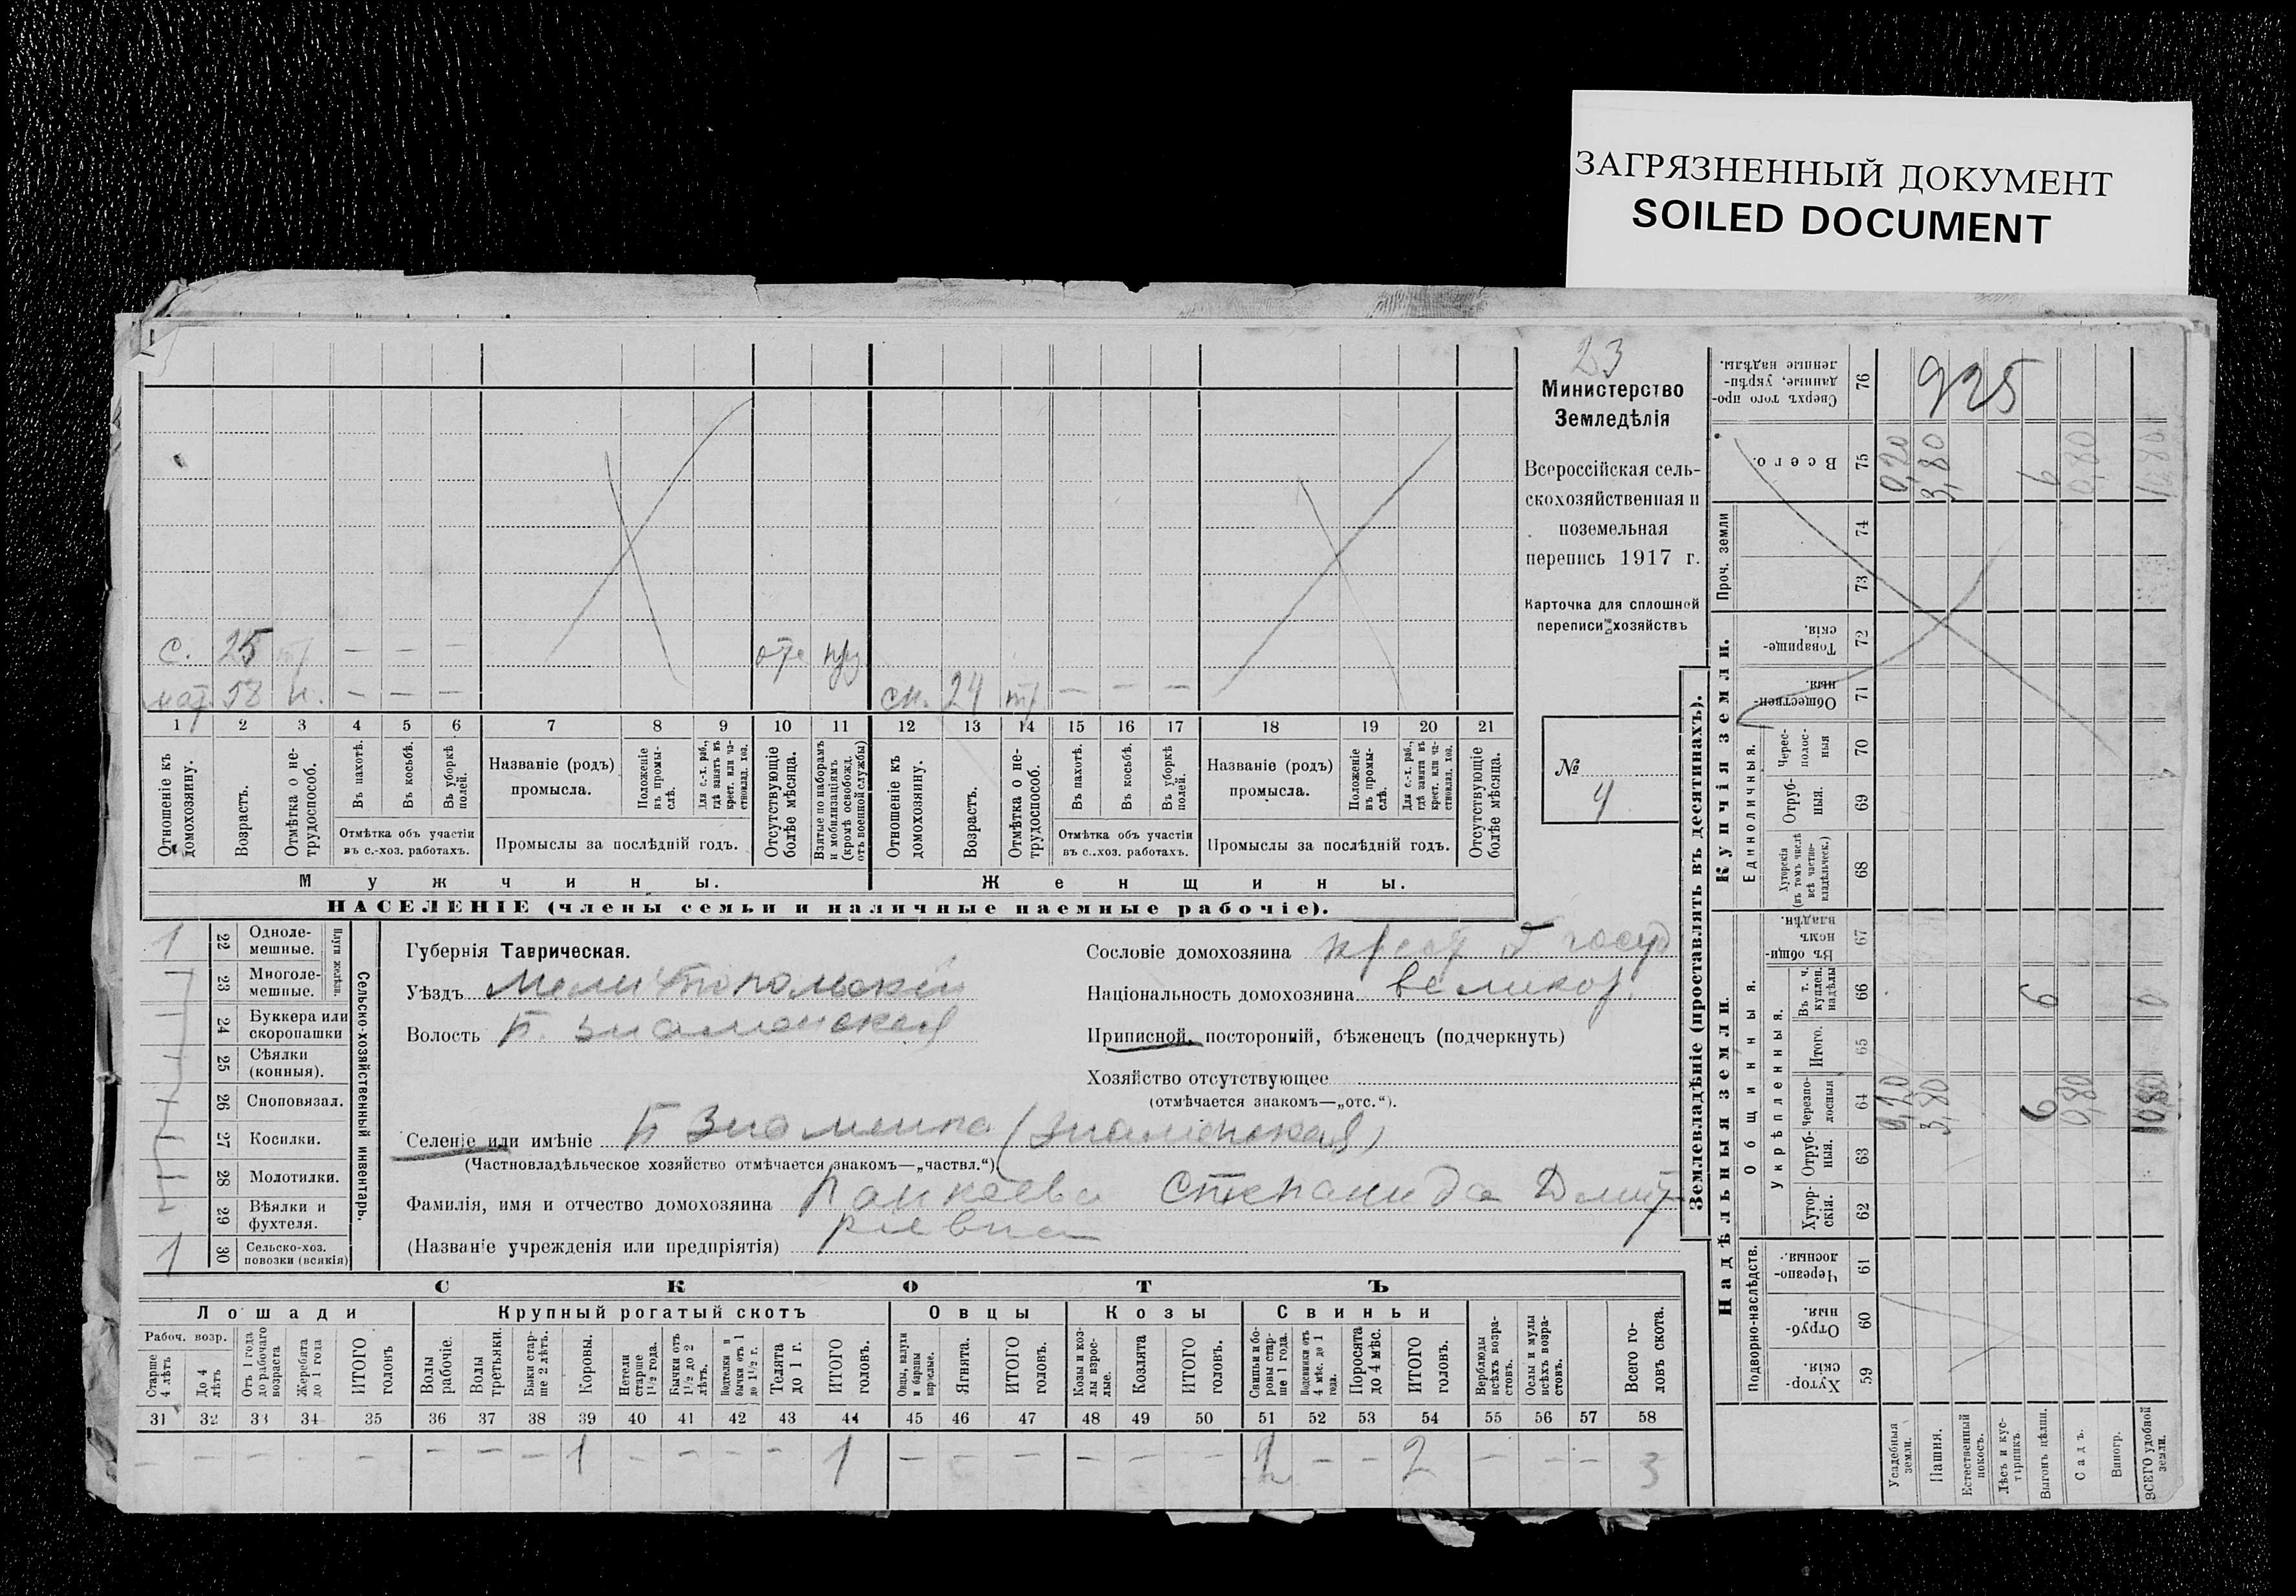 ЗАГРЯЗНЕННЫЙ ДОКУМЕНТ
SOILED DOCUMENT
23
Министерство
Земледѣлія
Всероссійская сель-
скохозяйственная и
поземельная
перепись 1917 г.
Карточка для сплошной
переписи хозяйствъ
№
4
с. 25 — — —
мат. 58 н. — — —
сн. 24 — — —
1 2 3 4 5 6 7 8 9 10 11 12 13 14 15 16 17 18 19 20 21
Отношеніе къ домохозяину.
Возрастъ.
Отмѣтка о не-трудоспособ.
Въ пахотѣ.
Въ косьбѣ.
Въ уборкѣ полей.
Отмѣтка объ участіи
въ с.-хоз. работахъ.
Названіе (родъ)
промысла.
Положеніе въ промы-слѣ.
Для с.-х. раб., гдѣ занятъ въ крест. или ча-стновлад. хоз.
Промыслы за послѣдній годъ.
Отсутствующіе болѣе мѣсяца.
Взятые по наборамъ и мобилизаціямъ (кромѣ освобожд. отъ военной службы)
Отношеніе къ домохозяину.
Возрастъ.
Отмѣтка о не-трудоспособ.
Въ пахотѣ.
Въ косьбѣ.
Въ уборкѣ полей.
Отмѣтка объ участіи
въ с..хоз. работахъ.
Названіе (родъ)
промысла.
Положеніе въ промы-слѣ.
Для с.-х. раб., гдѣ занята въ крест. или ча-стновлад. хоз.
Промыслы за послѣдній годъ.
Отсутствующіе болѣе мѣсяца.
Мужчины.
Женщины.
НАСЕЛЕНІЕ (члены семьи и наличные наемные рабочіе).
1 22 Одноле-мешные.
23 Многоле-мешные.
Плуги желѣзн.
24 Буккера или скоропашки
25 Сѣялки (конныя).
26 Сноповязал.
27 Косилки.
28 Молотилки.
29 Вѣялки и фухтеля.
1 30 Сельско-хоз. повозки (всякія)
Сельско-хозяйственный инвентарь.
Губернія Таврическая.
Уѣздъ Мелитопольскій
Волость Б. Знаменская
Сословіе домохозяина крест б госуд
Національность домохозяина великор.
Приписной, посторонній, бѣженецъ (подчеркнуть)
Хозяйство отсутствующее
(отмѣчается знакомъ—„отс.“).
Селеніе или имѣніе Б Знаменка (Знаменская)
(Частновладѣльческое хозяйство отмѣчается знакомъ—„частвл.“).
Фамилія, имя и отчество домохозяина Панкеева Степанида Дмит
риевна
(Названіе учрежденія или предпріятія)
СКОТЪ
Лошади
Крупный рогатый скотъ
Овцы
Козы
Свиньи
Рабоч. возр.
Старше 4 лѣтъ
До 4 лѣтъ
Отъ 1 года до рабочаго возраста
Жеребята до 1 года
ИТОГО головъ
Волы рабочіе.
Волы третьяки.
Быки стар-ше 2 лѣтъ.
Коровы.
Нетели старше 1 1/2 года.
Бычки отъ 1 1/2 до 2 лѣтъ.
Нетелки и бычки отъ 1 до 1 1/2 г.
Телята до 1 г.
ИТОГО головъ.
Овцы, валухи и бараны взрослые.
Ягнята.
ИТОГО головъ.
Козы и коз-лы взрос-лые.
Козлята
ИТОГО головъ.
Свиньи и бо-ровы стар-ше 1 года.
Подсвинки отъ 4 мѣс. до 1 года.
Поросята до 4 мѣс.
ИТОГО головъ.
Верблюды всѣхъ возра-стовъ.
Ослы и мулы всѣхъ возра-стовъ.
Всего го-ловъ скота.
31 32 33 34 35 36 37 38 39 40 41 42 43 44 45 46 47 48 49 50 51 52 53 54 55 56 57 58
— — — — — — — — 1 — — — — 1 — — — — — — 2 — — 2 — — — 3
Землевладѣніе (проставлять въ десятинахъ).
Купчія земли.
Надѣльныя земли.
Сверхъ того про-данные, укрѣп-ленные надѣлы. 76
925
Всего. 75
0,20
3,80
6
0,80
10,80
Проч. земли
74
73
Товарище-скія. 72
Обществен-ныя. 71
Единоличныя.
Черес-полос-ныя 70
Отруб-ныя. 69
Хуторскія (въ томъ числѣ всѣ частно-владѣльческ.) 68
Общинныя.
Въ общи-номъ владѣн. 67
Укрѣпленныя.
Въ т. ч. куплен. надѣлы 66
6
Итого. 65
Черезпо-лосныя 64
3,80
6
0,80
10,80
Отруб-ныя. 63
Хутор-скія. 62
Подворно-наслѣдств.
Черезпо-лосныя. 61
Отруб-ныя. 60
Хутор-скія. 59
Усадебныя земли.
Пашня.
Естественный покосъ.
Лѣсъ и кус-тарникъ
Выгонъ цѣлин.
Садъ.
Виногр.
ВСЕГО удобной земли.